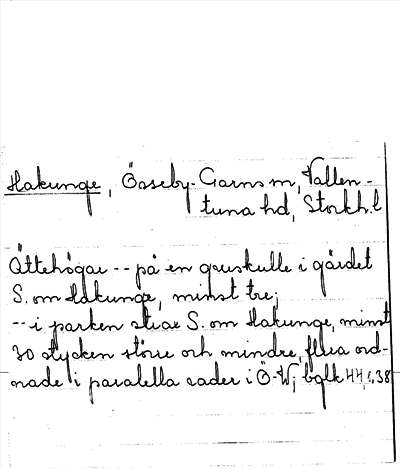 Hakunge, Össeby-Garns m, Vallen-
tuna hd, Stockh.l
Ättehögar -- på en gruskulle i gärdet
S. om Hakunge, minst tre;
-- i parken strax S. om Hakunge, minst
30 stycken större och mindre, flera ord-
nade i paralella rader i Ö-W;